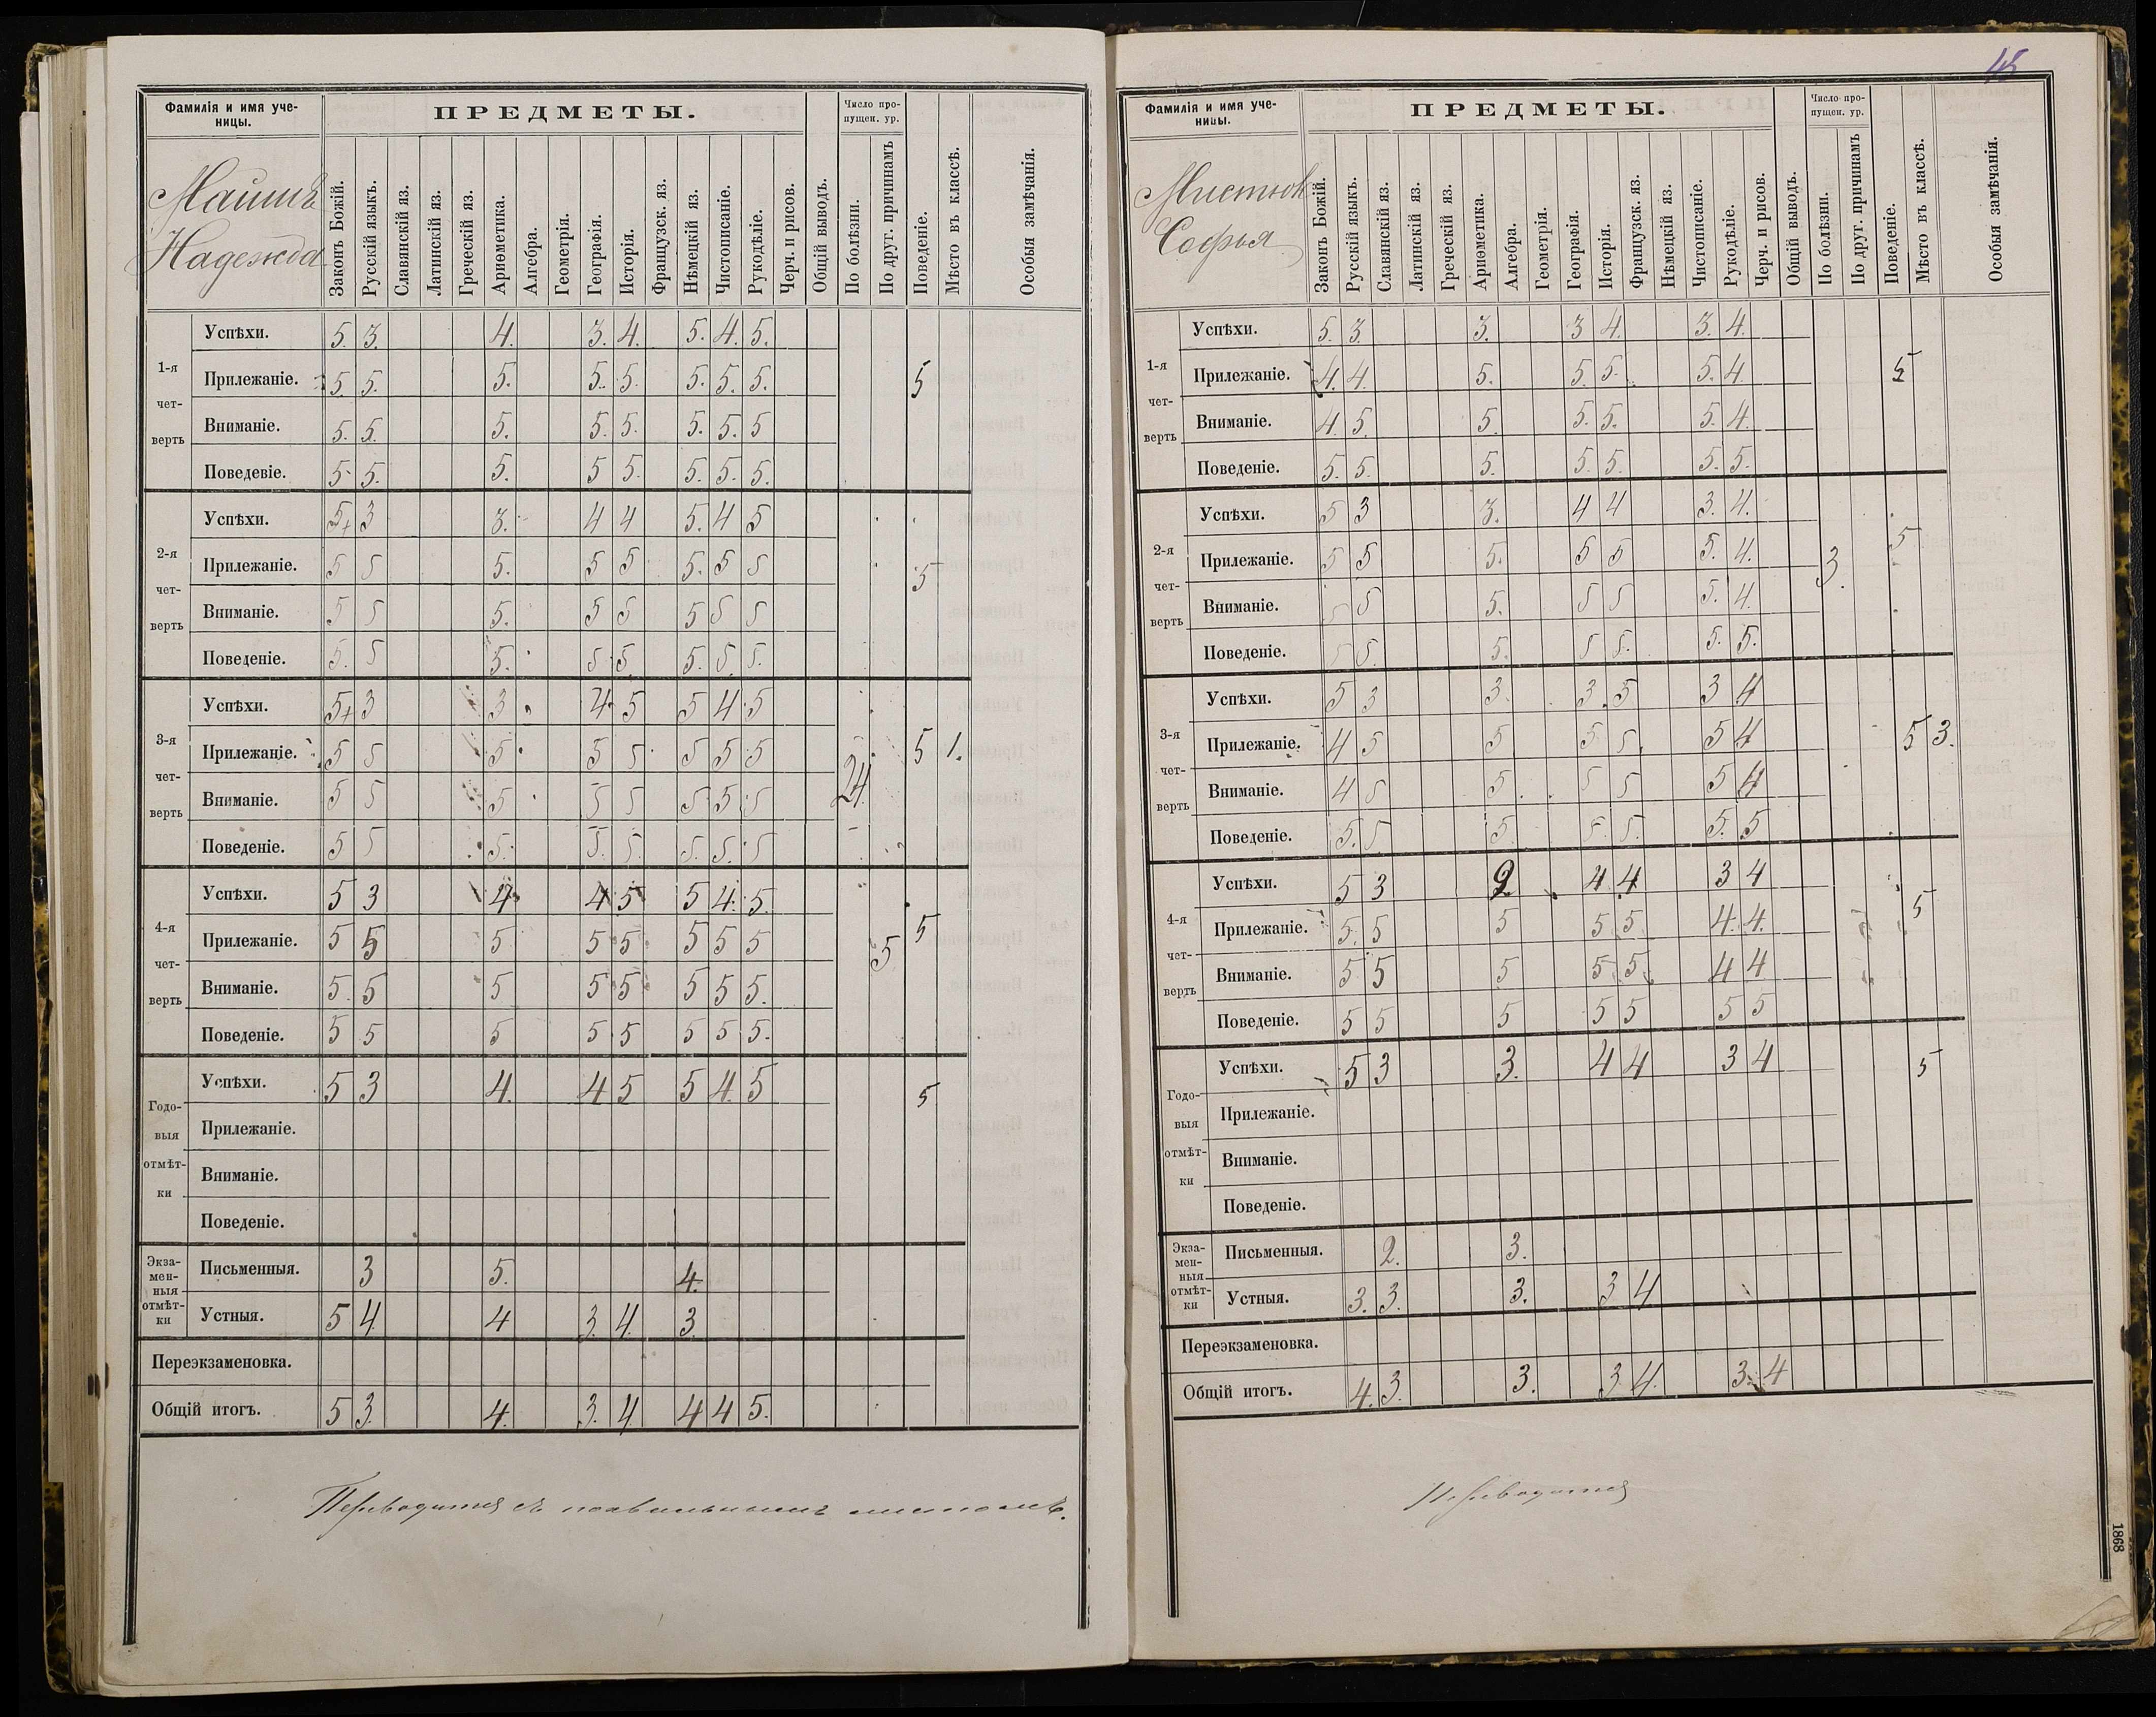 Фамилія и имя уче-
ницы.
ПРЕДМЕТЫ.
Число про-
пущен. ур.
Надежда
Законъ Божій.
Русскій языкъ.
Славянскій яз.
Латинскій яз.
Греческій яз.
Ариѳметика.
Алгебра.
Геометрія.
Географія.
Исторія.
Французск. яз.
Нѣмецкій яз.
Чистописаніе.
Рукодѣліе.
Черч. и рисов.
Общій выводъ.
По болѣзни.
По друг. причинамъ
Поведеніе.
Мѣсто въ классѣ.
Особыя замѣчанія.
1-я
чет-
верть
Успѣхи. 5. 3. 4. 3. 4. 5. 4. 5.
Прилежаніе. 5. 5. 5. 5. 5. 5. 5. 5. 5
Вниманіе. 5. 5. 5. 5. 5. 5. 5. 5
Поведевіе. 5. 5. 5. 5 5. 5. 5. 5.
2-я
чет-
верть
Успѣхи. 5+ 3 3. 4 4 5. 4 5
Прилежаніе. 5 5 5. 5 5 5. 5 5 5
Вниманіе. 5 5 5. 5 5 5 5 5
Поведеніе. 5. 5 5. 5 5 5. 5 5.
3-я
чет-
верть
Успѣхи. 5+ 3 3 4 5 5 4 5
Прилежаніе. 5 5 5 5 5 5 5 5 24 5 1.
Вниманіе. 5 5 5 5 5 5 5 5
Поведеніе. 5 5 5. 5. 5. 5. 5. 5
4-я
чет-
верть
Успѣхи. 5 3 4 4 5 5 4. 5.
Прилежаніе. 5 5 5 5 5 5 5 5 5 5
Вниманіе. 5. 5 5 5 5 5 5 5.
Поведеніе. 5 5 5 5 5 5 5 5.
Годо-
выя
отмѣт-
ки
Успѣхи. 5 3 4. 4 5 5 4. 5 5
Прилежаніе.
Вниманіе.
Поведеніе.
Экза-
мен-
ныя
отмѣт-
ки
Письменныя. 3 5. 4.
Устныя. 5 4 4 3. 4. 3
Переэкзаменовка.
Общій итогъ. 5 3. 4. 3. 4 4 4 5.
Переводится съ похвальнымъ листомъ.
15
Фамилія и имя уче-
ницы.
ПРЕДМЕТЫ.
Число про-
пущен. ур.
Софья
Законъ Божій.
Русскій языкъ.
Славянскій яз.
Латинскій яз.
Греческій яз.
Ариѳметика.
Алгебра.
Геометрія.
Географія.
Исторія.
Французск. яз.
Нѣмецкій яз.
Чистописаніе.
Рукодѣліе.
Черч. и рисов.
Общій выводъ.
По болѣзни.
По друг. причинамъ
Поведеніе.
Мѣсто въ классѣ.
Особыя замѣчанія.
1-я
чет-
верть
Успѣхи. 5. 3. 3. 3 4. 3. 4.
Прилежаніе. 4. 4. 5. 5. 5. 5. 4. 5
Вниманіе. 4. 5. 5. 5. 5. 5. 4.
Поведеніе. 5. 5. 5. 5. 5. 5. 5.
2-я
чет-
верть
Успѣхи. 5 3 3. 4 4 3. 4.
Прилежаніе. 5 5 5. 5 5 5. 4. 3. 5
Вниманіе. 5 5 5. 5 5 5. 4.
Поведеніе. 5 5. 5. 5 5. 5. 5.
3-я
чет-
верть
Успѣхи. 5 3 3. 3. 5 3 4
Прилежаніе. 4 5 5 5 5. 5 4 5 3.
Вниманіе. 4 5 5. 5 5 5 4
Поведеніе. 5. 5. 5. 5. 5. 5. 5
4-я
чет-
верть
Успѣхи. 5 3. 2 4 4 3 4
Прилежаніе. 5. 5 5 5 5 4. 4. 5
Вниманіе. 5 5 5 5 5 4 4
Поведеніе. 5 5 5 5 5 5 5
Годо-
выя
отмѣт-
ки
Успѣхи. 5 3 3. 4 4 3 4 5
Прилежаніе.
Вниманіе.
Поведеніе.
Экза-
мен-
ныя
отмѣт-
ки
Письменныя. 2. 3.
Устныя. 3. 3. 3. 3 4
Переэкзаменовка.
Общій итогъ. 4. 3. 3. 3 4. 3. 4
Переводится
1868